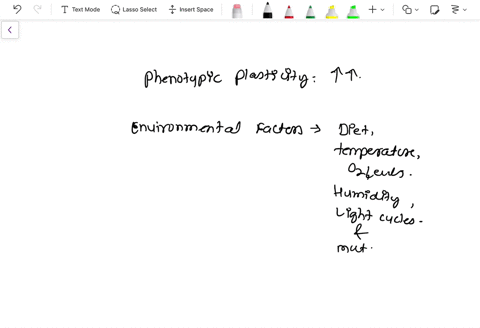 Text Mode Lasso Select Insert Space
Phenotypic Plasticity: ↑↑.
Environmental Factors → Diet,
temperature,
O2 levels.
Humidity,
Light cycles.
&
mut.